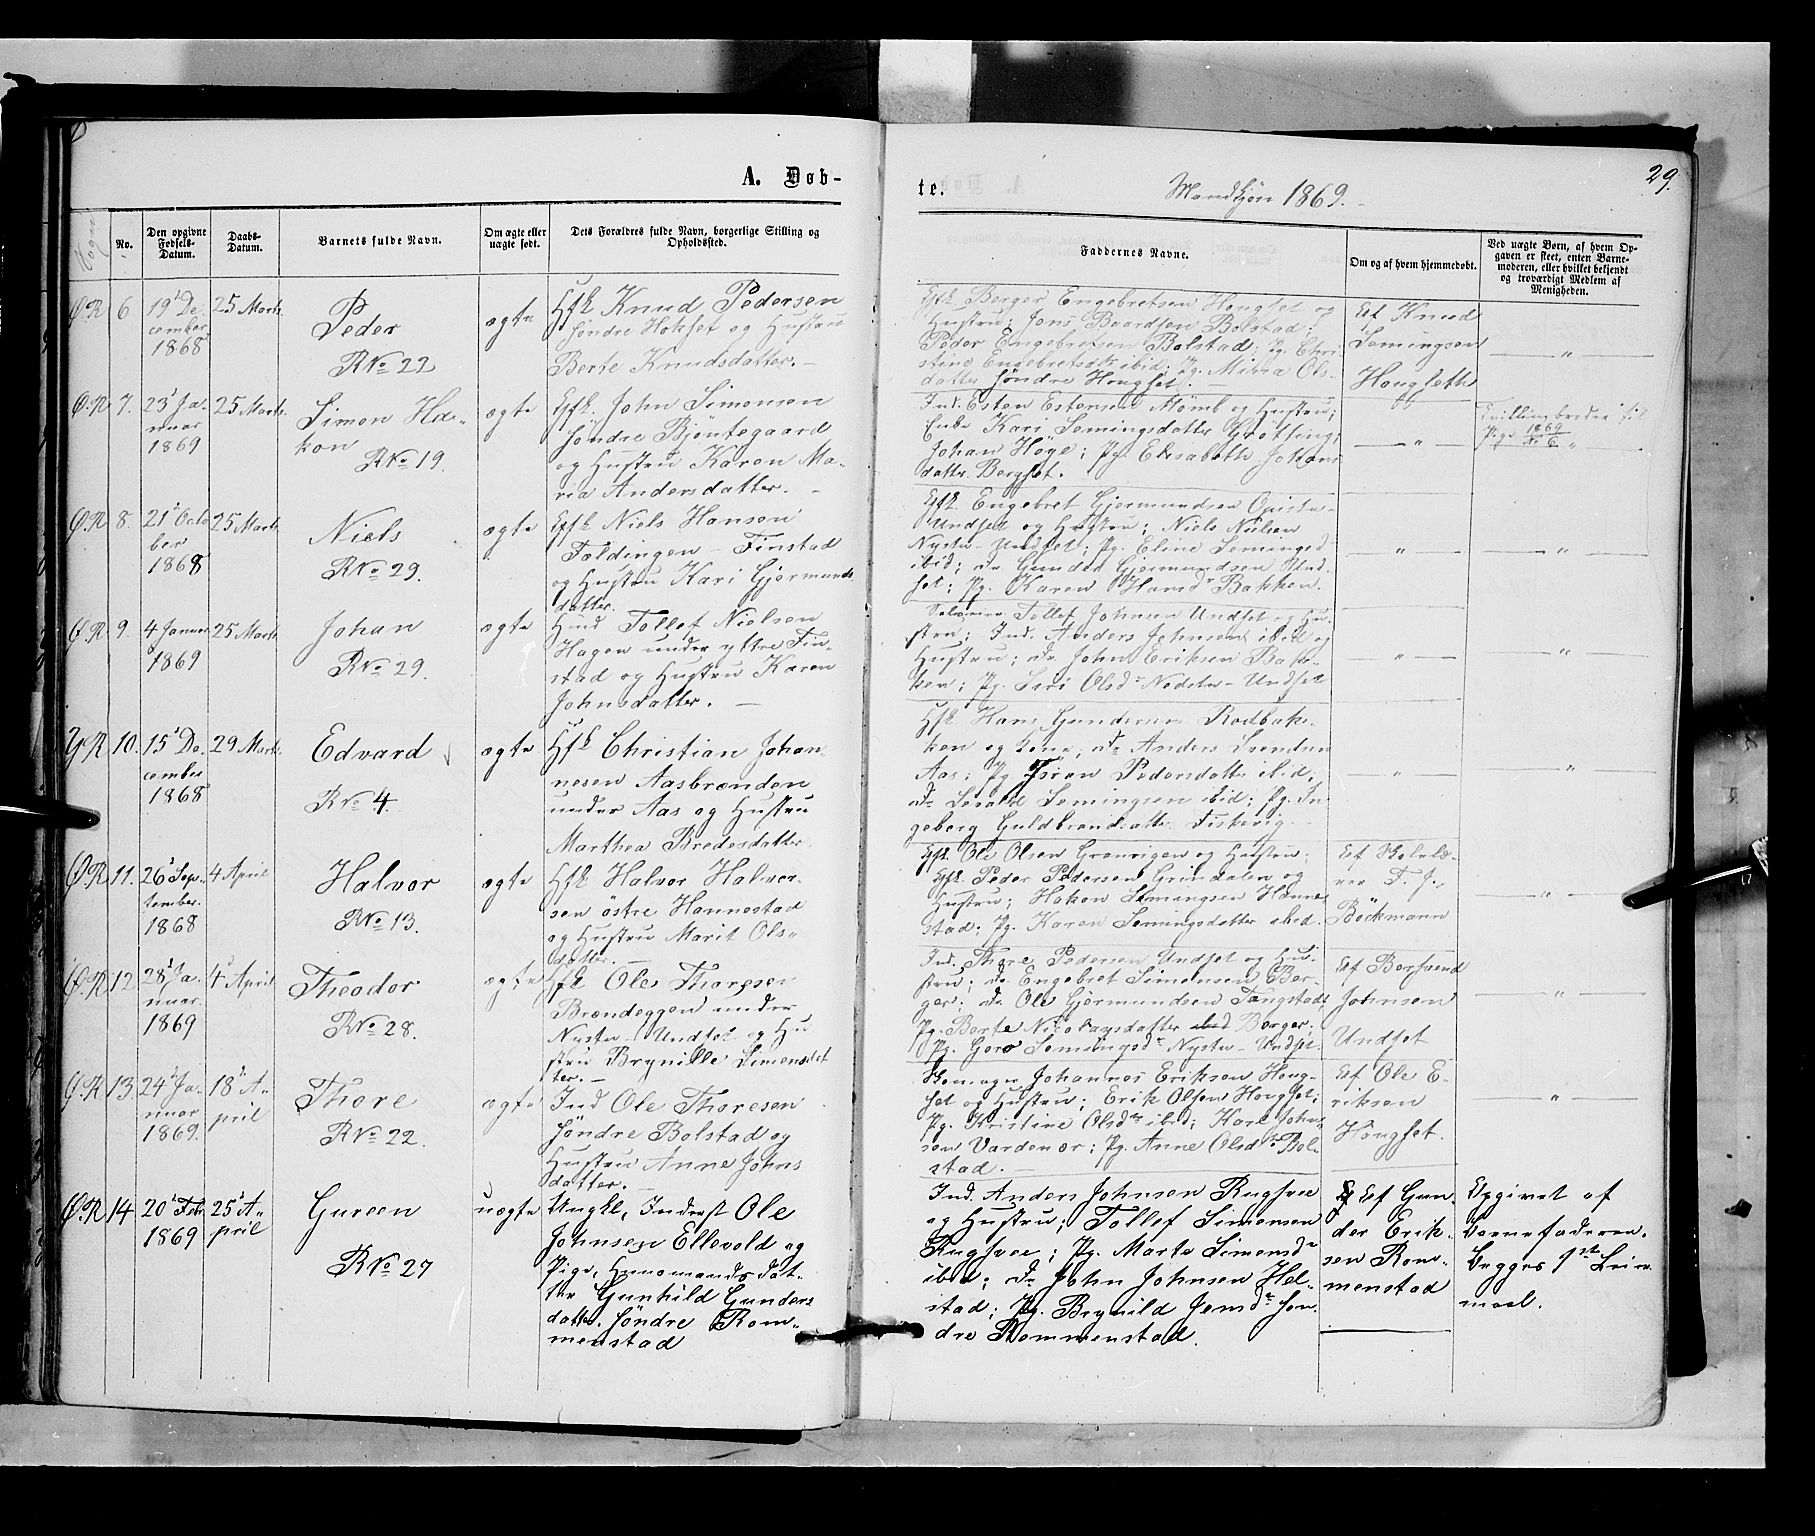 A. Døb-
te.
Mandkjøn 1869.
29.
Sogn
No.
Den opgivne
Fødsels-
Datum.
Daabs-
Datum.
Barnets fulde Navn.
Om ægte eller
uægte født.
Dets Forældres fulde Navn, borgerlige Stilling og
Opholdssted.
Faddernes Navne.
Om og af hvem hjemmedøbt.
Ved uægte Børn, af hvem Op-
gaven er skeet, enten Barne-
moderen, eller hvilket bekjendt
og troværdigt Medlem af
Menigheden.
Ø.R 6 19 De-
cember
1868
25 Marts
Peder
R No 22
ægte
Gfk Knud Pedersen
Søndre Hokset og Hustru
Berte Knudsdatter.
Gfk. Berger Engebretsen Hougset og
Hustru; Jens Baardsen Bolstad;
Peder Engebretsen Bolstad; Pg. Chri-
stine Engebretsdtr ibid; Pg. Ols-
datter Søndre Hougset.
Af Knud
Semingsen
Hougseth
Ø.R 7. 23 Ja-
nuar
1869
25 Marts
Simon Ha-
kon
R No 19.
ægte
Gfk. John Simonsen
Søndre Bjøntegaard
og Hustru Karen Ma-
ria Andersdatter.
Ind. Esten Estensen Mømb og Hustru;
Enke Kari Semingsdatter Grøtting;
Johan Høye; Pg. Elisabeth Johans
datter Bergset.
Tvillingbroder til
Pige 1869
No 6
Ø.R 8. 21 Octo
ber
1868
25 Marts
Niels
R No 29.
ægte
Gfk Niels Hansen
Foldingen - Finstad
og Hustru Kari Gjermunds
datter.
Gfk. Engebret Gjermundsen
Undset og Hustru; Niels Nielsen
Nystu-Undset; Pg. Eline Semingsd
ibid; do Gunder Gjermundsen Und
set; Pg. Karen Hansd Bakken.
Ø.R 9. 4 Januar
1869
25 Marts
Johan
R No 29.
ægte
Hmd Tollef Nielsen
Hagen under yttre Fin-
stad og Hustru Karen
Johnsdatter.
Tollef Johnsen Undset og Hu-
stru; Ind. Anders Johnsen ibid og
Hustru; do John Eriksen Bak-
ken; Pg. Siri Olsd Nedstu-Undset
YR 10. 15 De-
cember
1868
29 Marts
Edvard
R No 4.
ægte
Hfk Christian Johan-
nesen Aasbrænden
under Aas og Hustru
Marthea Bredesdatter
Hfk Hans Gundersen Rodbak-
ken og Kone; do Anders Svendsen
Aas; Pg. Jøran Pedersdatter ibid;
do Semingsen ibid; Pg. In
geborg Guldbrandsatter Fiskvig.
Ø.R 11. 26 Sep-
tember
1868
4 April
Halvor
R No 13.
ægte
Hfk Halvor Halvor-
sen østre Hannestad
og Hustru Marit Ols-
datter.
Gfk. Ole Olsen Granrigen og Hustru;
Gfk. Peder Pedersen Grindalen og
Hustru; Hakon Semingsen Hanne
stad; Pg. Karen Semingsdatter ibid.
Af Skolelæ-
rer T. J.
Böckmann
Ø.R 12 28 Ja-
nuar
1869
4 April
Theodor
R No 28.
ægte
Hfk Ole Thoresen
Brændeggen under
Nystu-Undset og Hu
stru Brynille Simensdat
ter.
Ind. Thore Pedersen Undset og Hu-
stru; do Engebret Simensen Ber-
ger; do Ole Gjermundsen Tangstad;
Pg. Berte Nicolaysdatter Berger;
Pg. Goro Semingsd Nystu-Undset.
Af Borsvend
Johnsen
Undset
Ø.R 13. 24 Ja-
nuar
1869.
18 A-
pril
Thore
R No 22.
ægte
Ind Ole Thoresen
Søndre Bolstad og
Hustru Anne Johns
datter.
Johannes Eriksen Houg-
set og Hustru; Erik Olsen Hougset;
Pg. Kristine Olsdtr ibid; Kari John-
sen Vardenær; Pg. Anne Olsdtr Bol-
stad.
Af Ole E-
riksen
Hougset.
Ø.R 14 20 Feb
1869
25 A-
pril
Gureen
R No 27
uægte
Ungkl, Inderst Ole
Johnsen Ellevold og
Pige, Huusmands dat-
ter Gunhild Gunders
datter, Søndre Rom-
menstad
Ind. Anders Johnsen Rugsvee
og Hustru; Tollef Simensen
Rugsvee; Pg. Marte Simensd
ibid; do John Johnsen Hel-
stad; Pg. Brynild Jensd Søn
dre Rommenstad.
Af Gun
der Erik-
sen Rom-
menstad
Opgivet af
Barnefaderen.
Begges 1st Leier
maal.